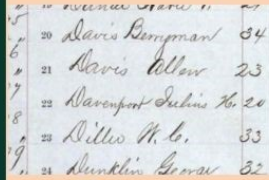 20 Davis Berryman 34
21 Davis Allen 23
22 Davenport Julius H. 20
23 Dillis W. C. 33
24 Dunklin George 32